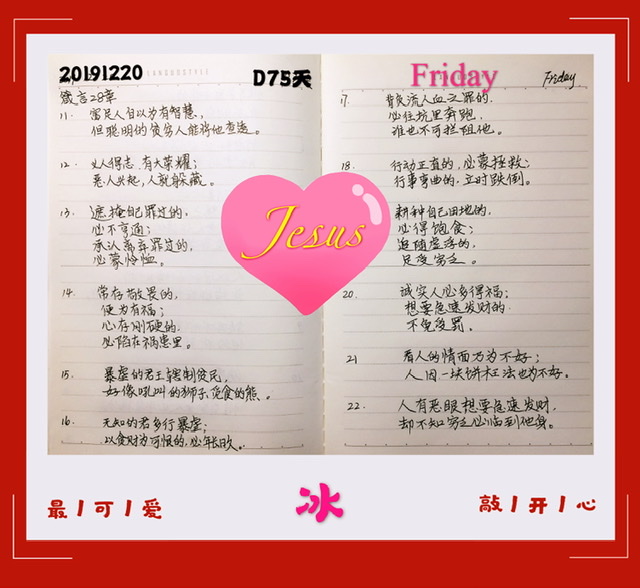 20191220
LANGUOSTYLE
D75天
箴言28章
11. 富足人自以为有智慧,
但聪明的贫穷人能将他查透。
12. 义人得志, 有大荣耀;
恶人兴起, 人就躲藏。
13. 遮掩自己罪过的,
必不亨通;
承认离弃罪过的,
必蒙怜恤。
14. 常存敬畏的,
便为有福;
心存刚硬的,
必陷在祸患里。
15. 暴虐的君王辖制贫民,
好像吼叫的狮子, 觅食的熊。
16. 无知的君多行暴虐;
以贪财为可恨的, 必年长久。
Jesus
Friday
Friday
17. 背负流人血之罪的,
必往坑里奔跑,
谁也不可拦阻他。
18. 行动正直的, 必蒙拯救;
行事弯曲的, 立时跌倒。
耕种自己田地的,
必得饱食;
追随虚浮的,
足受穷乏。
20. 诚实人必多得福;
想要急速发财的,
不免受罚。
21 看人的情面乃为不好;
人因一块饼枉法也为不好。
22. 人有恶眼想要急速发财,
却不知穷乏必临到他身。
最/可/爱
冰
敲/开/心